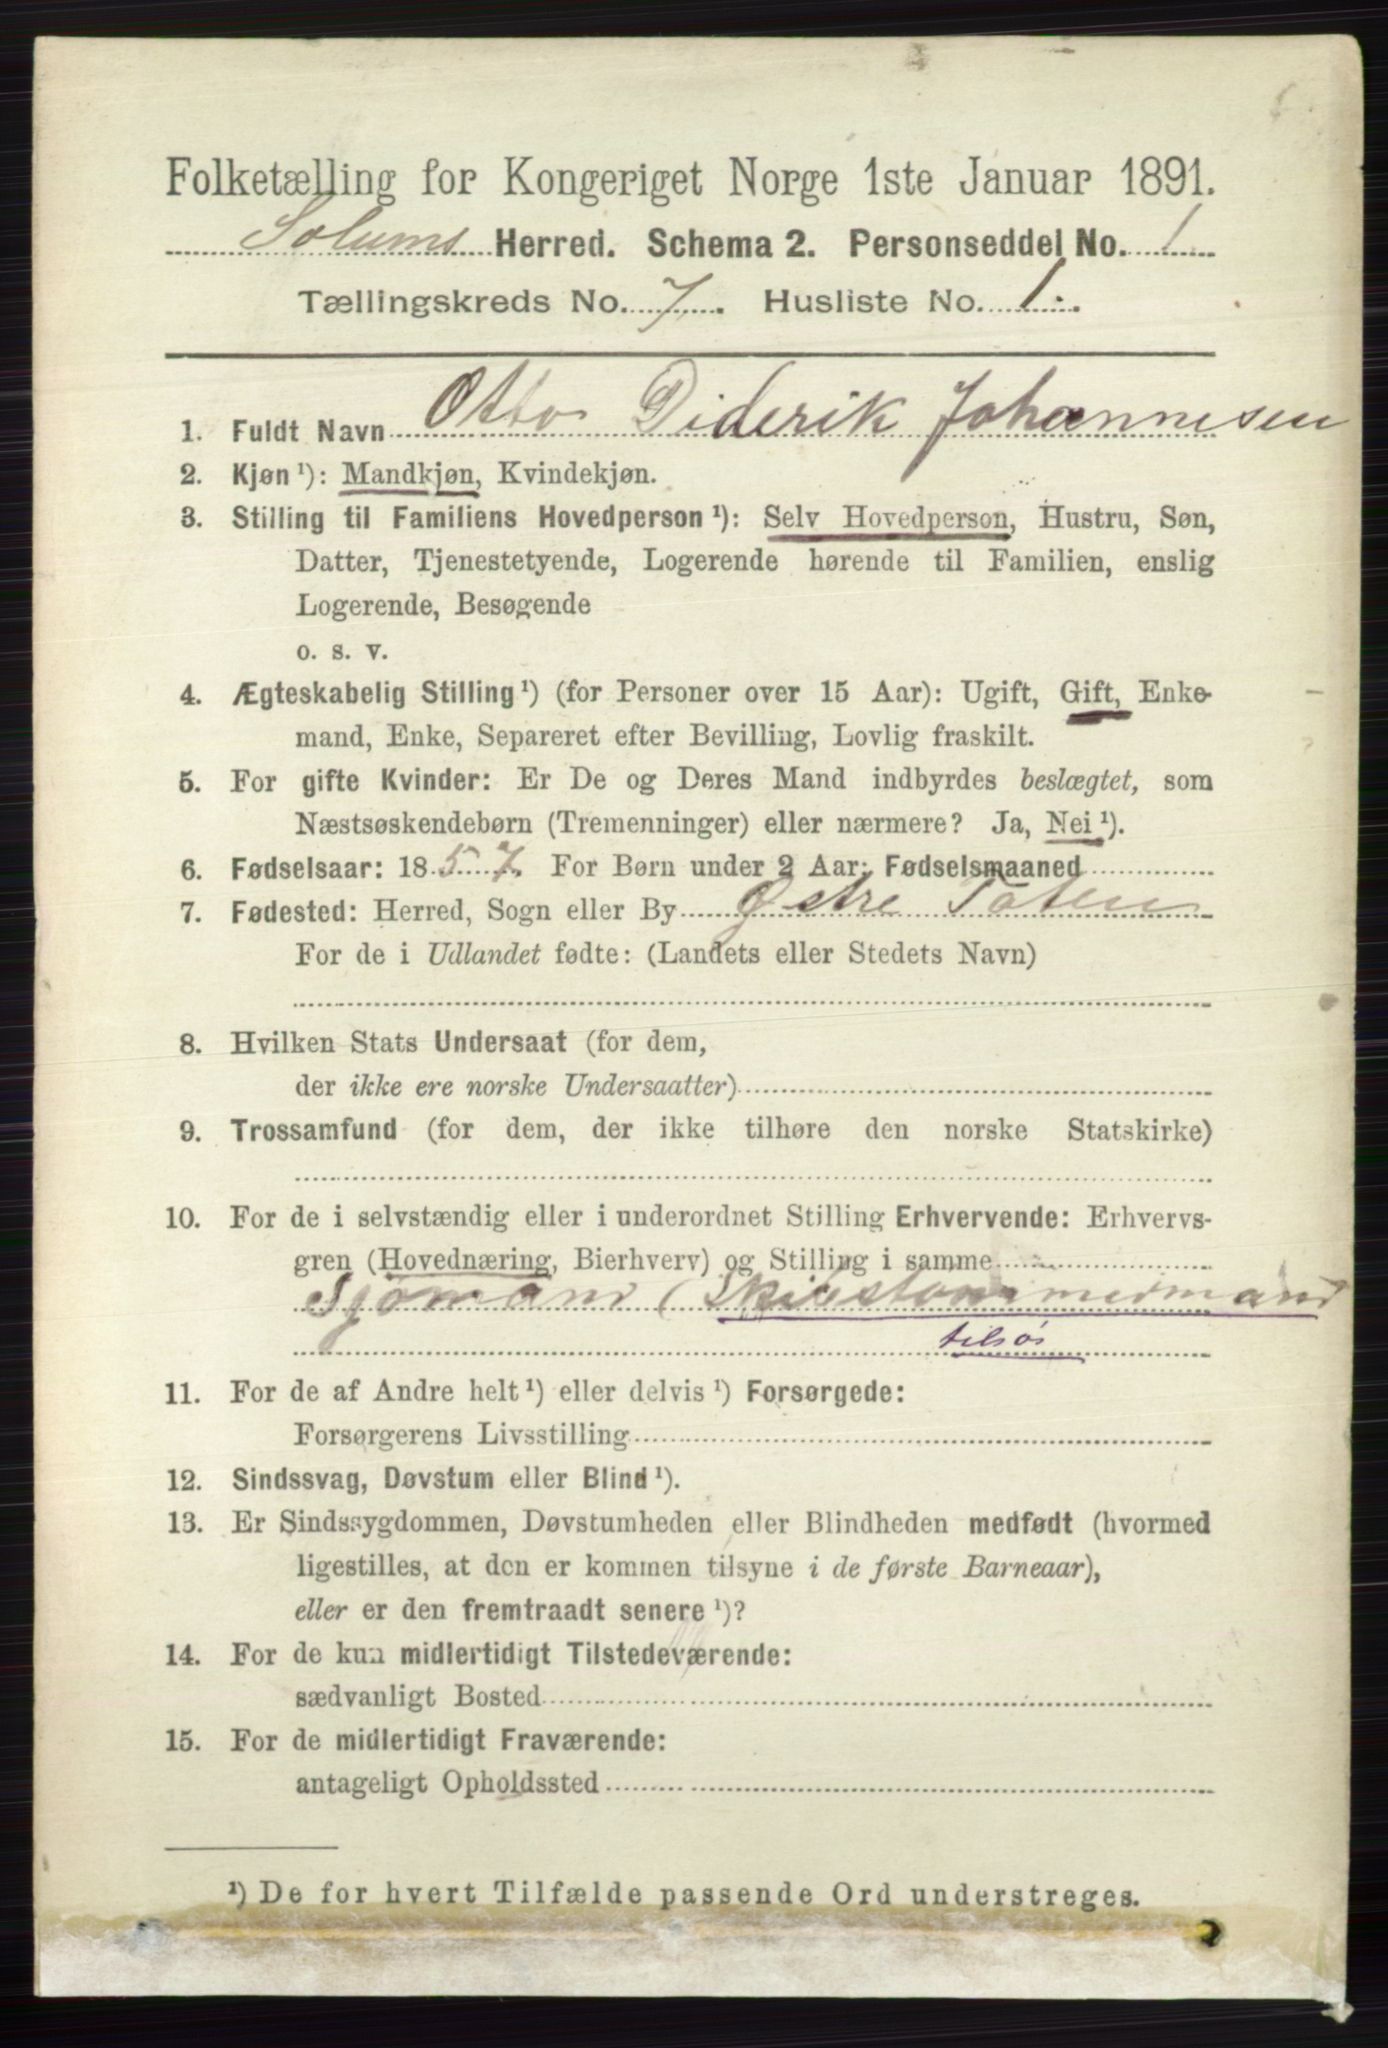 Folketælling for Kongeriget Norge 1ste Januar 1891.
Solums Herred. Schema 2. Personseddel No. 1
Tællingskreds No. 7. Husliste No. 1.
1. Fuldt Navn Otto Diderik Johannesen
2. Kjøn¹): Mandkjøn, Kvindekjøn.
3. Stilling til Familiens Hovedperson¹): Selv Hovedperson, Hustru, Søn,
Datter, Tjenestetyende, Logerende hørende til Familien, enslig
Logerende, Besøgende
o. s. v.
4. Ægteskabelig Stilling¹) (for Personer over 15 Aar): Ugift, Gift, Enke-
mand, Enke, Separeret efter Bevilling, Lovlig fraskilt.
5. For gifte Kvinder: Er De og Deres Mand indbyrdes beslægtet, som
Næstsøskendebørn (Tremenninger) eller nærmere? Ja, Nei¹).
6. Fødselsaar: 1857. For Børn under 2 Aar: Fødselsmaaned
7. Fødested: Herred, Sogn eller By Østre Toten
For de i Udlandet fødte: (Landets eller Stedets Navn)
8. Hvilken Stats Undersaat (for dem,
der ikke ere norske Undersaatter)
9. Trossamfund (for dem, der ikke tilhøre den norske Statskirke)
10. For de i selvstændig eller i underordnet Stilling Erhvervende: Erhvervs-
gren (Hovednæring, Bierhverv) og Stilling i samme
Sjømand (Skibstømmermand
tilsøs
11. For de af Andre helt¹) eller delvis¹) Forsørgede:
Forsørgerens Livsstilling
12. Sindssvag, Døvstum eller Blind¹).
13. Er Sindssygdommen, Døvstumheden eller Blindheden medfødt (hvormed
ligestilles, at den er kommen tilsyne i de første Barneaar),
eller er den fremtraadt senere¹)?
14. For de kun midlertidigt Tilstedeværende:
sædvanligt Bosted
15. For de midlertidigt Fraværende:
antageligt Opholdssted
¹) De for hvert Tilfælde passende Ord understreges.